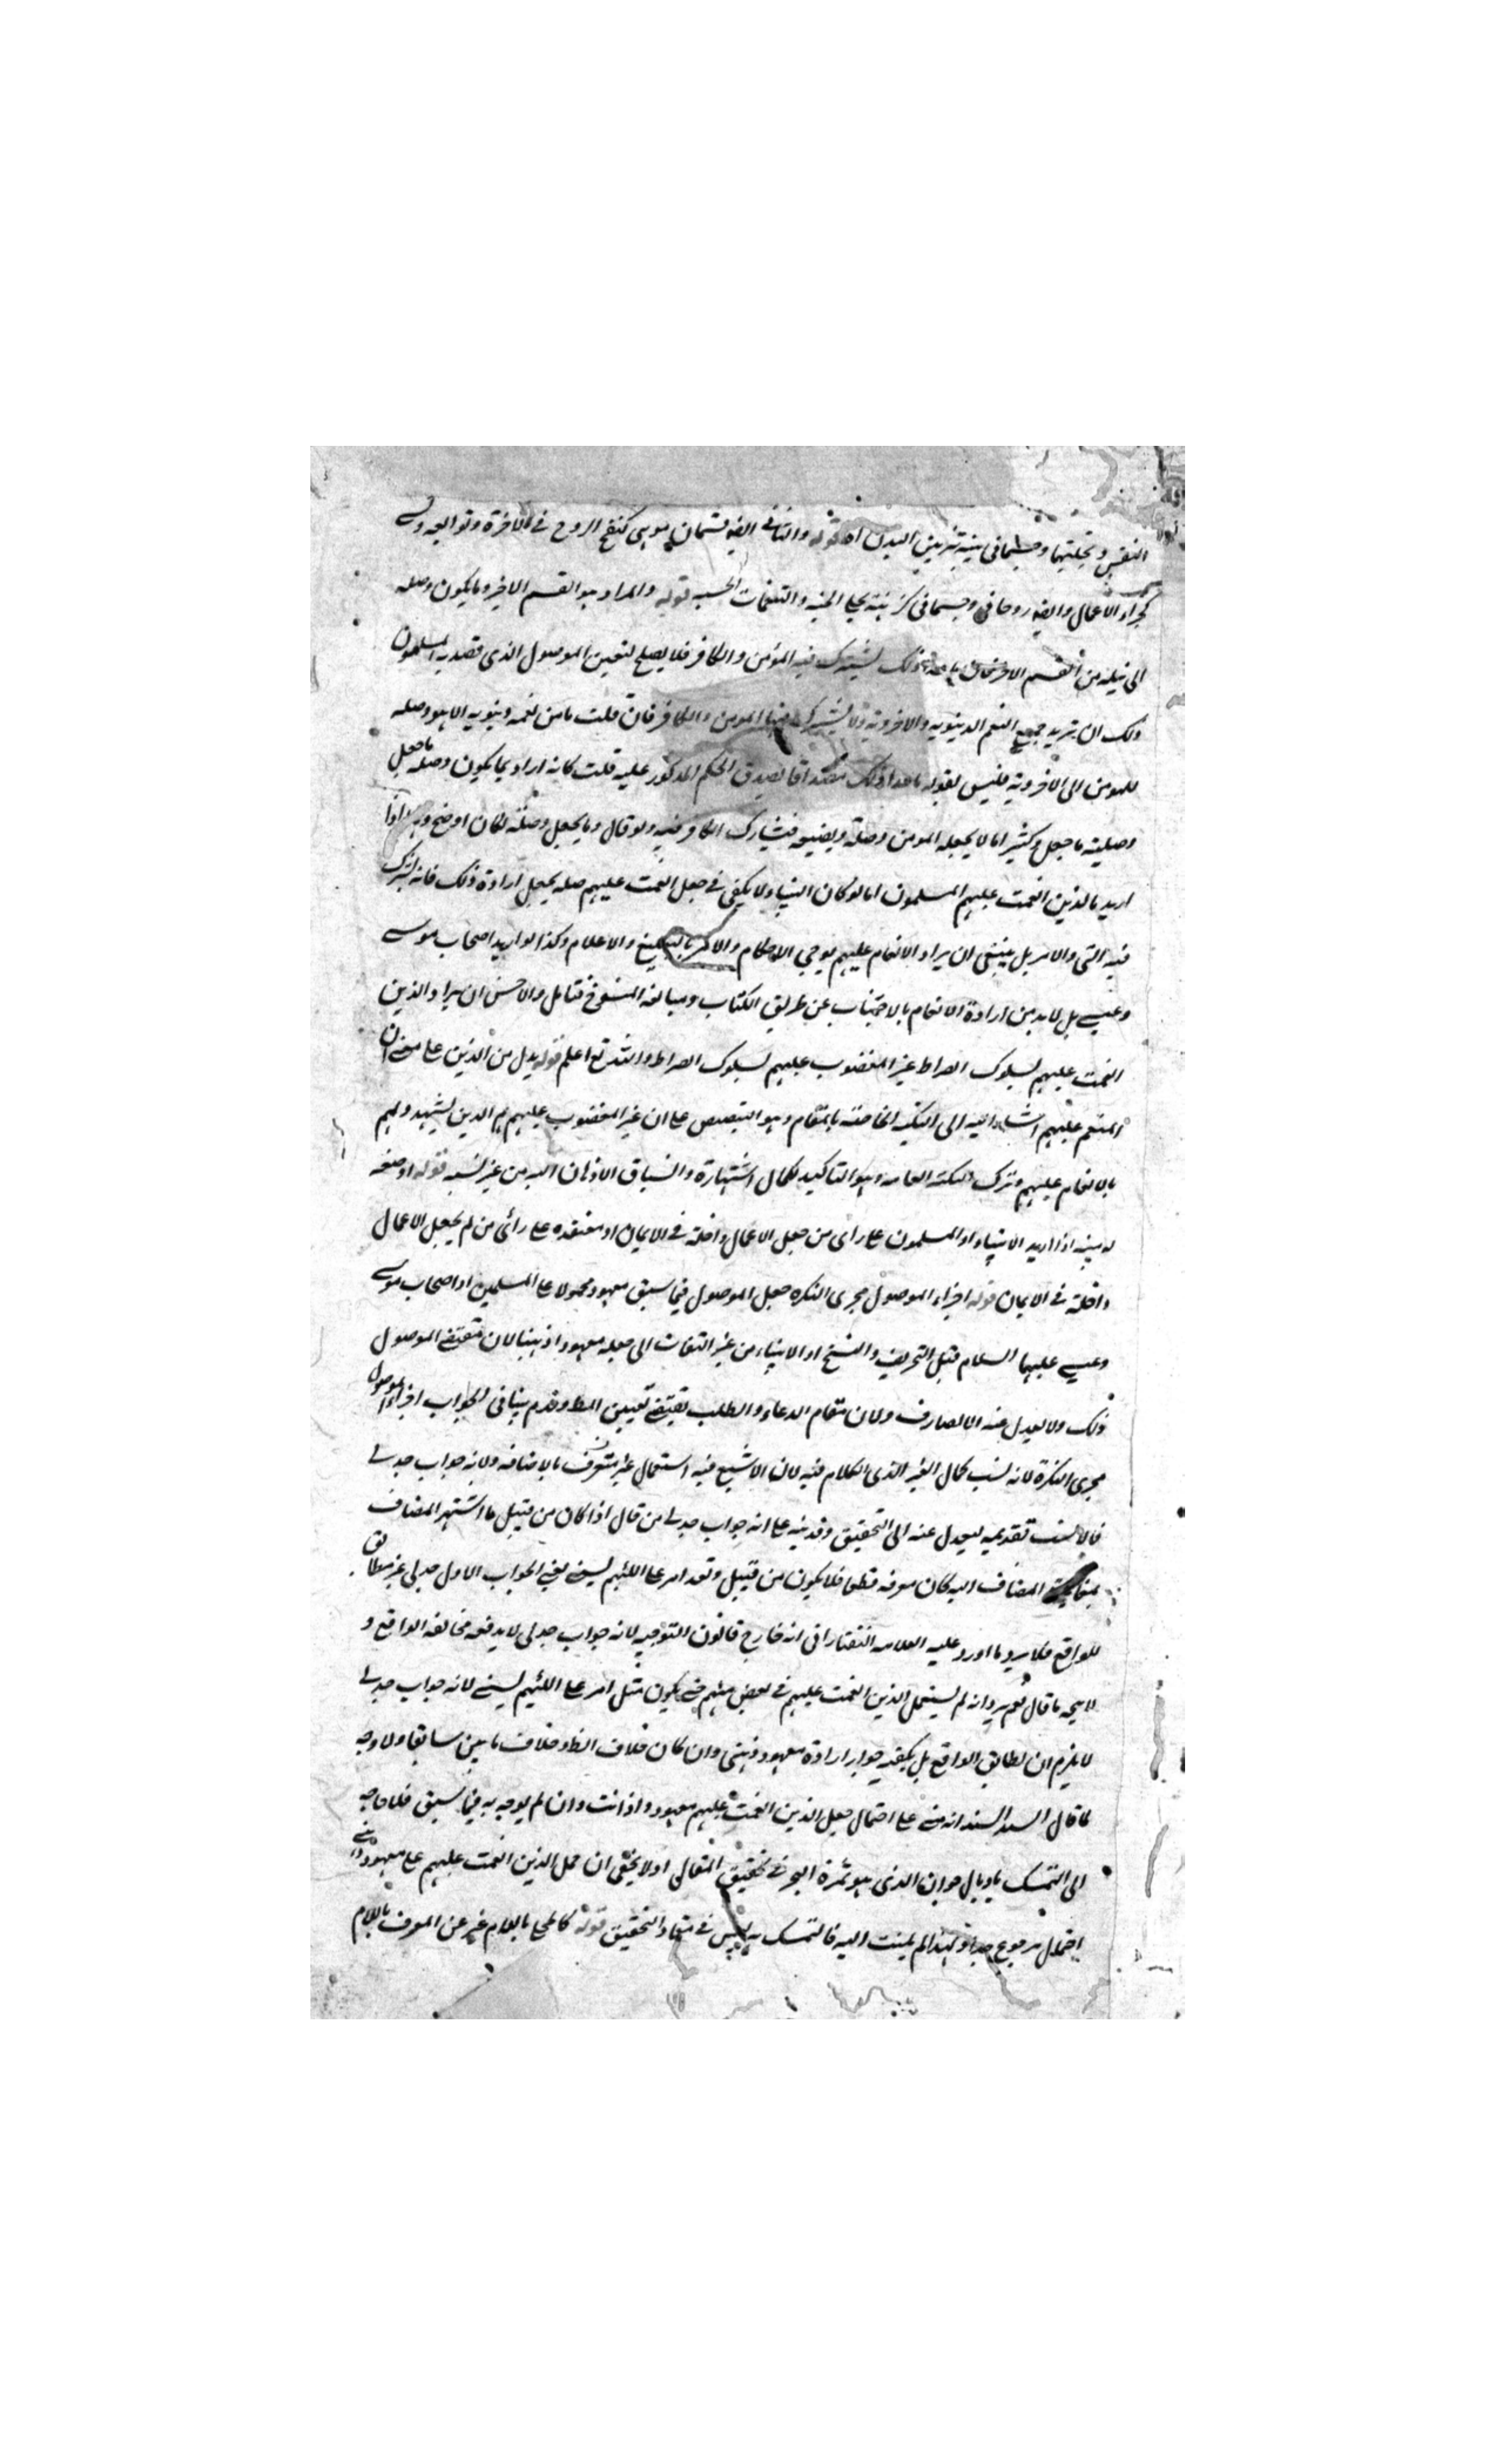 النفس وتحليتها وجسماني بينه بتزيين البدن اه قوله والثاني ايضا قسمان موهبي كنفخ الروح في الآخرة وتوابعه و
كجزاء الاعمال وايضا روحاني وجسماني كزينة بحلي الجنة والتنعمات الحسية قوله والمراد هو القسم الاخير وما يكون وصله
الى نيله من القسم الاخر فان ما عدا ذلك يشترك فيه المؤمن والكافر فلا يصلح لتعين الموصول الذي قصد به المسلمون
ذلك ان تريد جميع النعم الدنيويه والاخرويه ولا يشترك فيها المومن والكافر فان قلت ما من نعمه دنيويه الا هو وصله
للمومن الى الاخرويه فليس لقوله ما عدا ذلك مصداقا يصدق الحكم المذكور عليه قلت كانه اراد بما يكون وصله ما جعل
وصليته ما جعل وكثيرا ما لا يجعله المومن وصلة ويضيعه فيشارك الكافر فيه ولو قال وما يجعل وصلة لكان اوضح وهذا اذا
اريد بالذين انعمت عليهم المسلمون اما لو كان انبياء ولا يكفي في جعل انعمت عليهم صله يجعل ارادة ذلك فانه يشترك
فيه النبي والامر بل ينبغي ان يراد الانعام عليهم بوحي الاحكام والامر بالتبليغ والاعلام وكذا لو اريد اصحاب موسى
وعيسى بل لا بد من ارادة الانعام بالاجتناب عن طريق الكتاب ومبالغه المنسوخ فتامل والاحسن ان يراد الذين
انعمت عليهم بسلوك الصراط غير المغضوب عليهم بسلوك الصراط والله تع اعلم قوله بدل من الذين على معنى ان
المنعم عليهم اشارة اليه الى النكتة الخاصة بالمقام وهو التنصيص على ان غير المغضوب عليهم هم الذين يشهد لهم
بالانعام عليهم وترك النكته العامه وهو التاكيد لكمال اشتهاره وانسياق الاذهان اليه من غير لنسبه قوله او صفه
له مبينه اذا اريد الانبياء او المسلمون على راى من جعل الاعمال داخلة في الايمان او مقيده على رائ من لم يجعل الاعمال
داخلة في الايمان قوله اجراء الموصول مجرى النكره جعل الموصول فيما سبق معهودا محمولا على المسلمين او اصحاب موسى
وعيسى عليهما السلام قبل التحريف والنسخ او الانبياء من غير التفات الى جعله معهودا ذهنيا لان مقتضى الموصول
ذلك ولا يعدل عنه الا لصارف ولان مقام الدعاء والطلب يقتضى تعيين المط وقدم بيانا في الجواب اجراء الموصول
مجرى النكرة لانه انسب بحال الغير الذي الكلام فيه لان الاشيع فيه استعمال غير متعرف بالاضافه ولانه جواب جدلي
فالانسب تقديمه ليعدل عنه الى التحقيق وقد نبه على انه جواب جدلي من قال اذا كان من قبيل ما اشتهر المضاف
بمغايرة المضاف اليه كان معرفه قطعا فلا يكون من قبيل ولقد امر على اللئيم يسبني ففي الجواب الاول جدلي غير مطابق
للواقع فلا يرد ما اورد عليه العلامه التفتازاني انه خارج قانون التوجيه لانه جواب جدلي لا يدفعه مخالفه الواقع و
لا يتجه ما قال نعم يرد انه لم يستعمل الذين انعمت عليهم في بعض منهم حتى يكون مثل امر على اللئيم يسبني لانه جواب جدلي
لا يلزم ان يطابق الواقع بل يكفيه جواز ارادة معهود ذهني وان كان خلاف الظ وخلاف ما بين سابقا ولا وجه
لما قال السيد السند انه مبني على احتمال جعل الذين انعمت عليهم معهودا وانت وان لم يوجه به فيما سبق فلا حاجه
الى التمسك باذيال الذي هو ثمرة البحر في تحقيق المقال اولا يخفى ان حمل الذين انعمت عليهم على معهود ذهني
احتمال مرجوع جدا ولهذا لم يلتفت اليه فالتمسك به ليس في مقام التحقيق قوله كالمحلى باللام عبر عن المعرف باللام